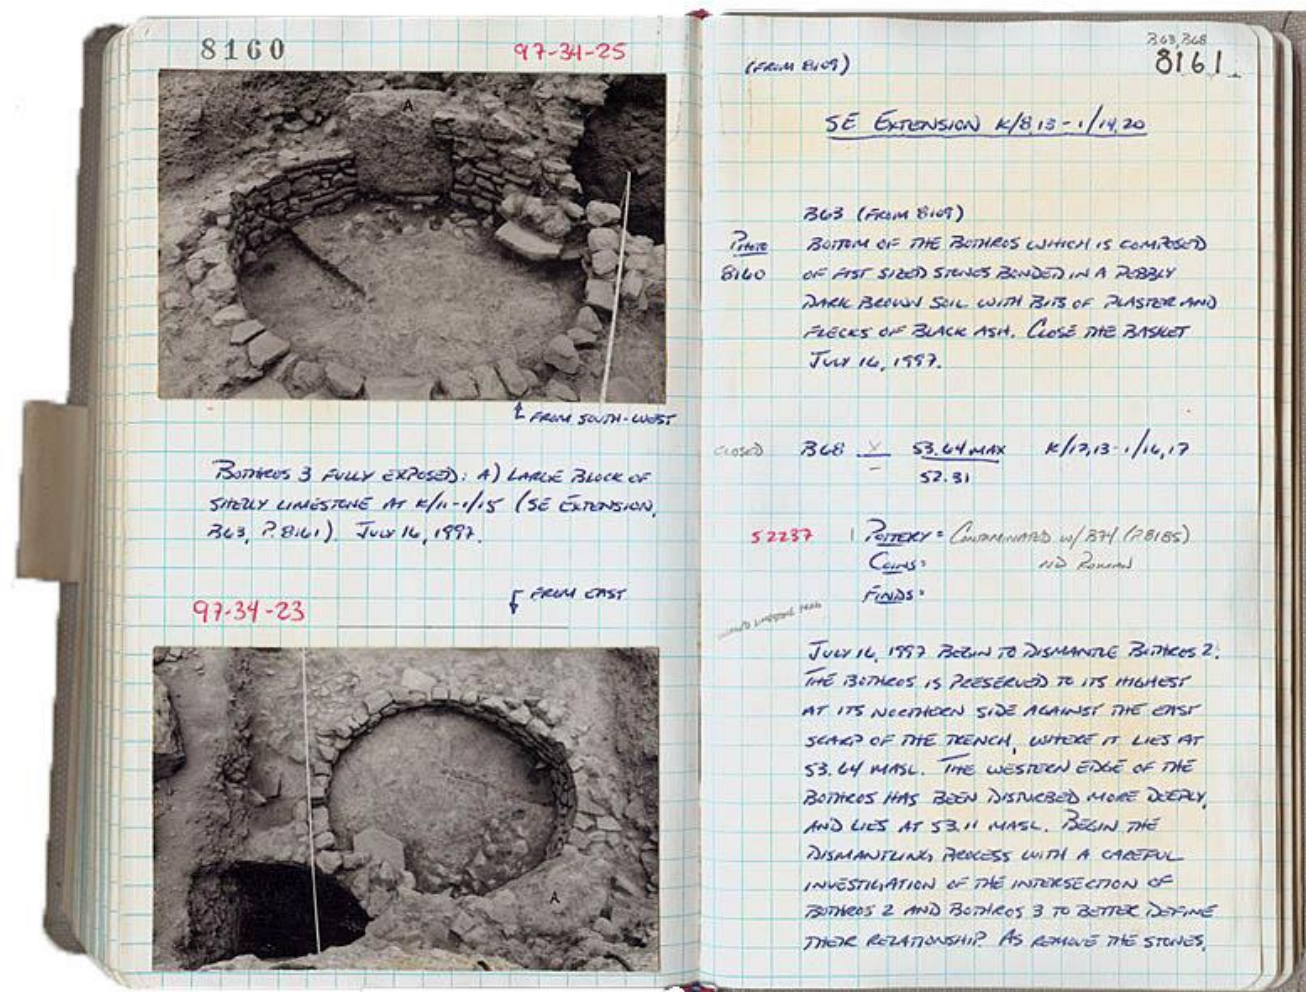 8160
97-34-25
A
↑ FROM SOUTH-WEST
BOTHROS 3 FULLY EXPOSED: A) LARGE BLOCK OF
SHELLY LIMESTONE AT K/11-1/15 (SE EXTENSION,
B63, P. 8161). JULY 16, 1997.
FROM EAST
97-34-23
A
B63, B68
8161
(FROM 8109)
SE EXTENSION K/8,13-1/14,20
B63 (FROM 8109)
PHOTO
8160
BOTTOM OF THE BOTHROS WHICH IS COMPOSED
OF FIST SIZED STONES BONDED IN A PEBBLY
DARK BROWN SOIL WITH BITS OF PLASTER AND
FLECKS OF BLACK ASH. CLOSE THE BASKET
JULY 16, 1997.
CLOSED B68 X 53.64 MAX K/12,13-1/16,17
– 52.31
52237 | POTTERY: CONTAMINATED W/ B74 (P.8185)
COINS: NO ROMAN
FINDS:
LIMESTONE
JULY 16, 1997 BEGIN TO DISMANTLE BOTHROS 2.
THE BOTHROS IS PRESERVED TO ITS HIGHEST
AT ITS NORTHERN SIDE AGAINST THE EAST
SCARP OF THE TRENCH, WHERE IT LIES AT
53.64 MASL. THE WESTERN EDGE OF THE
BOTHROS HAS BEEN DISTURBED MORE DEEPLY,
AND LIES AT 53.11 MASL. BEGIN THE
DISMANTLING PROCESS WITH A CAREFUL
INVESTIGATION OF THE INTERSECTION OF
BOTHROS 2 AND BOTHROS 3 TO BETTER DEFINE
THEIR RELATIONSHIP. AS REMOVE THE STONES,